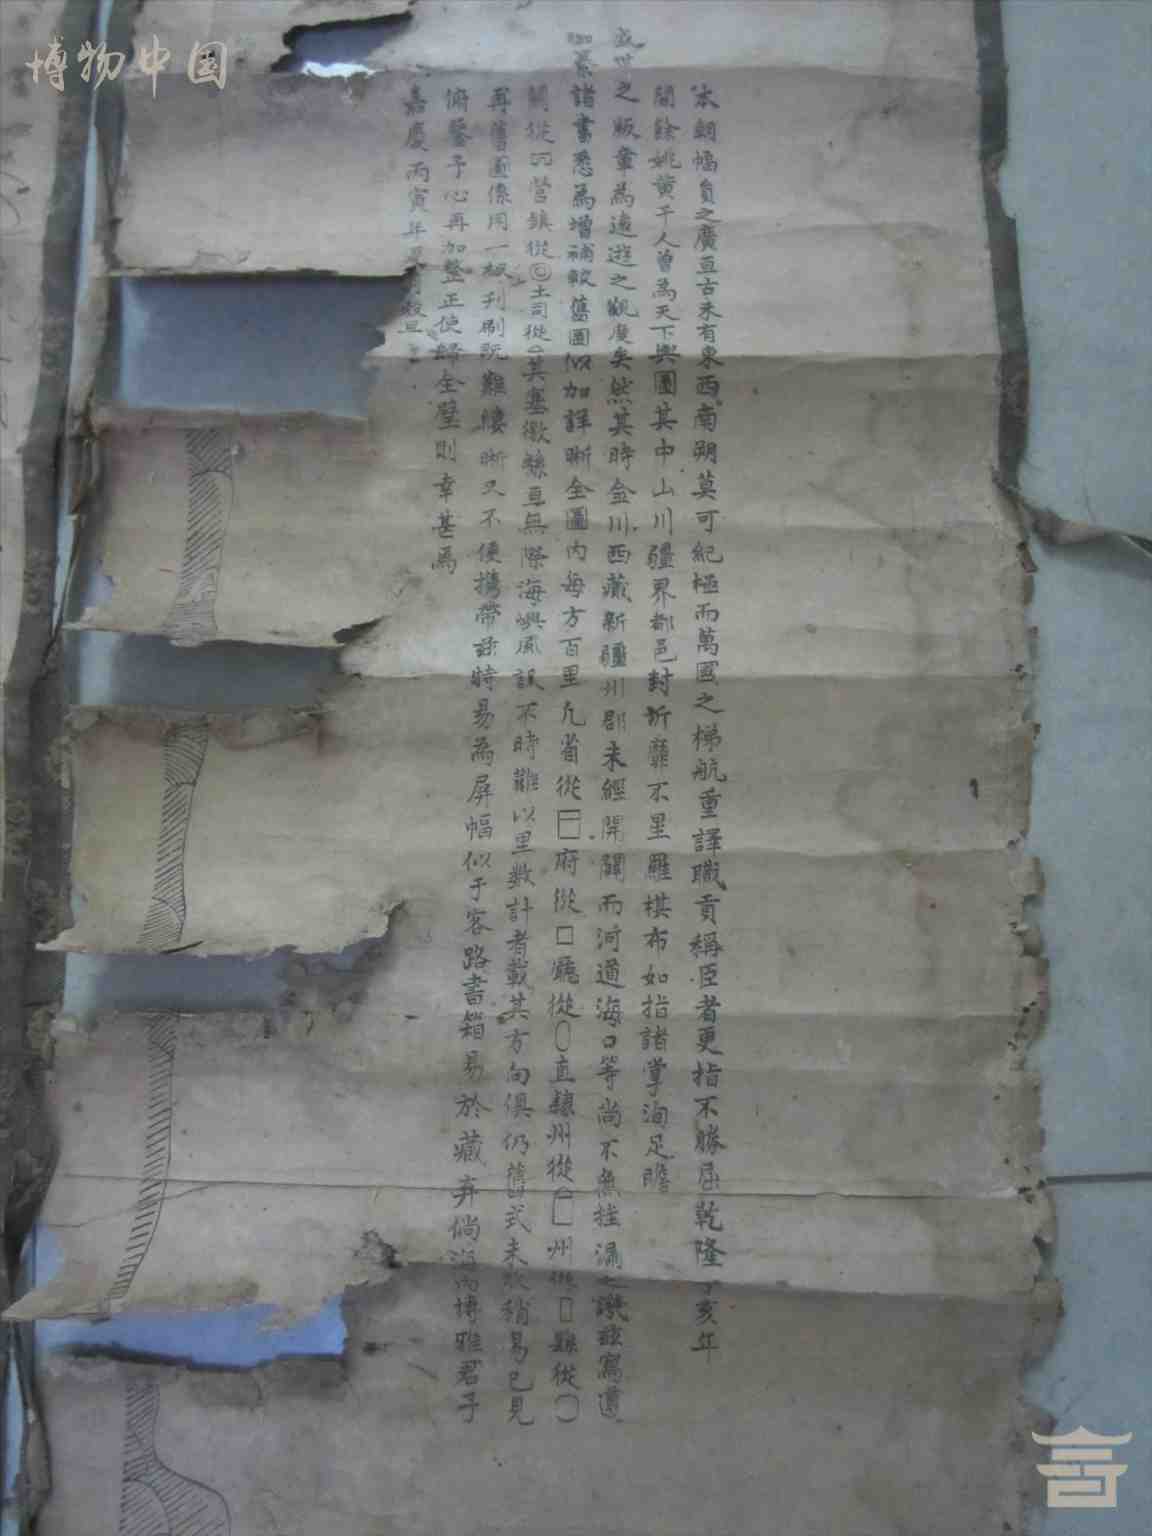 博物中国
本朝幅員之廣亘古未有東西南朔莫可紀極而萬國之梯航重譯職貢稱臣者更指不勝屈乾隆丁亥年
間餘姚黄千人曾為天下輿圖其中山川疆界都邑封圻靡不星羅棋布如指諸掌洵足瞻
盛世之版章為遠遊之觀度矣然其時金川西藏新疆州郡未經開闢而河道海口等尚不無挂漏之譏茲寫遵
諸書悉為增補較舊圖似加詳晰全圖内每方百里凡省從府從□廳從○直隸州從州從縣從
關從営鎮從◎土司從其塞徼綿亘無際海嶼風訊不時難以里數計者載其方向俱仍舊式未敢稍易已見
再舊圖係用一板刋刷既難縷晰又不便攜帶茲特易為屏幅似于客路書箱易於藏弃倘海内博雅君子
俯鑒予心再加整正使歸全璧則幸甚焉
嘉慶丙寅年